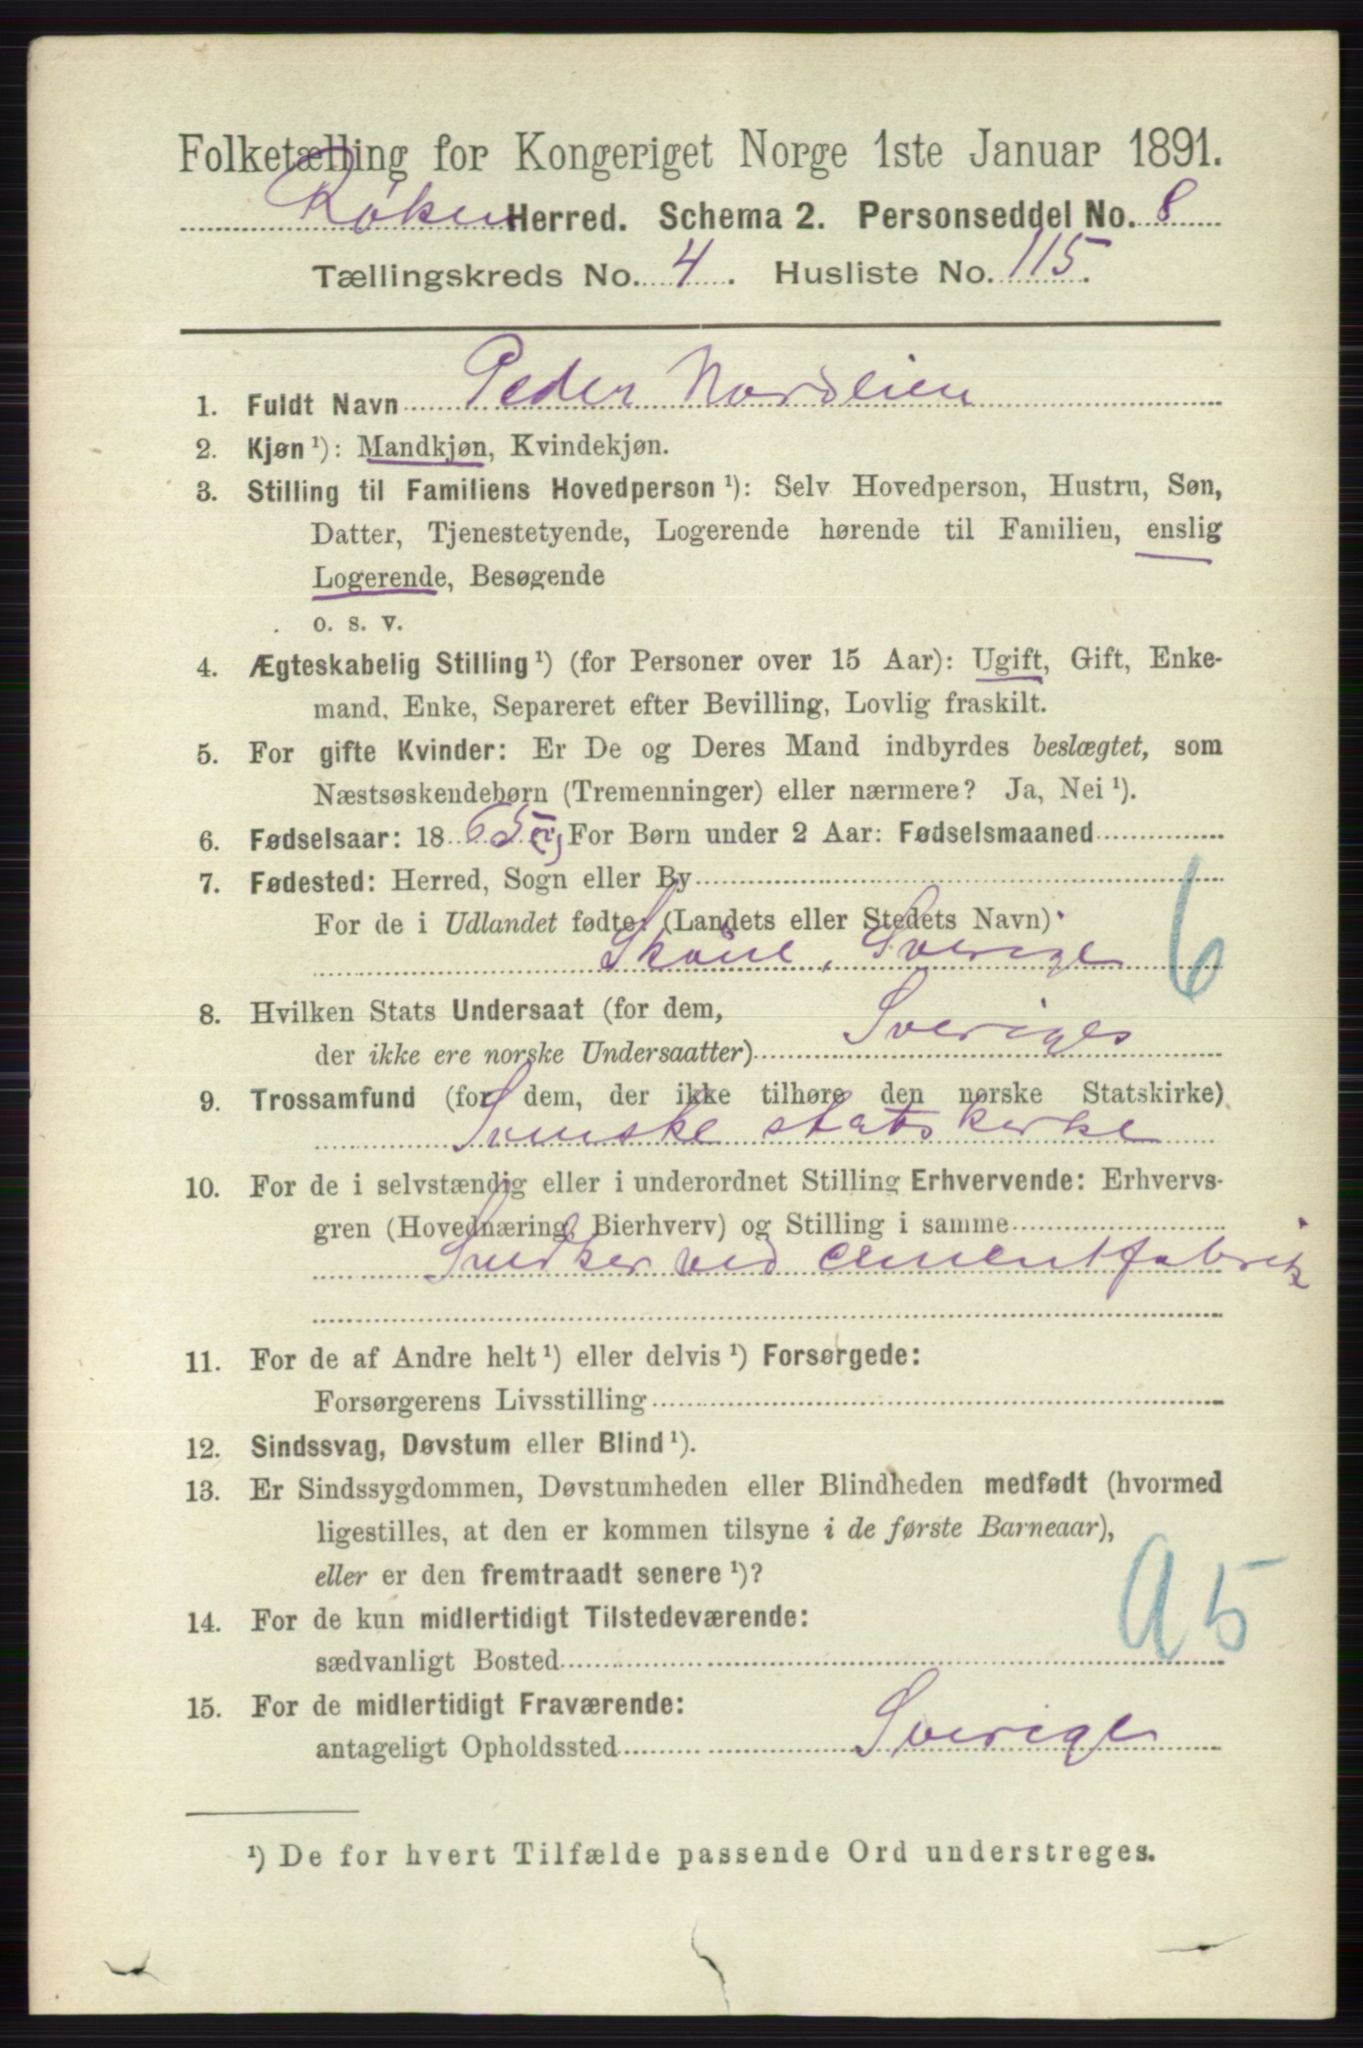 Folketælling for Kongeriget Norge 1ste Januar 1891.
Røken Herred. Schema 2. Personseddel No. 8
Tællingskreds No. 4. Husliste No. 115.
1. Fuldt Navn Peder Nordlien
2. Kjøn ¹): Mandkjøn, Kvindekjøn.
3. Stilling til Familiens Hovedperson ¹): Selv Hovedperson, Hustru, Søn,
Datter, Tjenestetyende, Logerende hørende til Familien, enslig
Logerende, Besøgende
o. s. v.
4. Ægteskabelig Stilling ¹) (for Personer over 15 Aar): Ugift, Gift, Enke-
mand, Enke, Separeret efter Bevilling, Lovlig fraskilt.
5. For gifte Kvinder: Er De og Deres Mand indbyrdes beslægtet, som
Næstsøskendebørn (Tremenninger) eller nærmere? Ja, Nei ¹).
6. Fødselsaar: 1865 For Børn under 2 Aar: Fødselsmaaned
7. Fødested: Herred, Sogn eller By
For de i Udlandet fødte: (Landets eller Stedets Navn)
Skåne, Sverige 6
8. Hvilken Stats Undersaat (for dem,
der ikke ere norske Undersaatter) Sveriges
9. Trossamfund (for dem, der ikke tilhøre den norske Statskirke)
Svenske statskirke
10. For de i selvstændig eller i underordnet Stilling Erhvervende: Erhvervs-
gren (Hovednæring, Bierhverv) og Stilling i samme
Snedker ved cementfabrik
11. For de af Andre helt ¹) eller delvis ¹) Forsørgede:
Forsørgerens Livsstilling
12. Sindssvag, Døvstum eller Blind ¹).
13. Er Sindssygdommen, Døvstumheden eller Blindheden medfødt (hvormed
ligestilles, at den er kommen tilsyne i de første Barneaar),
eller er den fremtraadt senere ¹)?
14. For de kun midlertidigt Tilstedeværende:
sædvanligt Bosted
a5
15. For de midlertidigt Fraværende:
antageligt Opholdssted Sverige
¹) De for hvert Tilfælde passende Ord understreges.